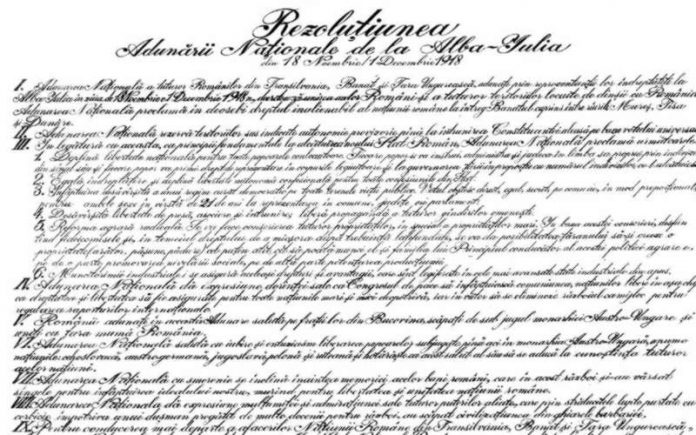 Rezoluțiunea
Adunării Naționale de la Alba-Iulia
din 18 Noembrie/1 Decembrie 1918
I. Adunarea Națională a tuturor Românilor din Transilvania, Banat și Țara Ungurească, adunați prin reprezentanții lor îndreptățiți la
Alba-Iulia în ziua de 18 Noembrie/1 Decembrie 1918, decretează unirea acelor Români și a tuturor teritoriilor locuite de dînșii cu România.
Adunarea Națională proclamă în deosebi dreptul inalienabil al națiunii române la întreg Banatul cuprins între rîurile Mureș, Tisa
Dunăre.
II. Adunarea Națională rezervă teritoriilor sus indicate autonomie provizorie pînă la întrunirea Constituantei aleasă pe baza votului universal
III. În legătură cu aceasta, ca principii fundamentale la alcătuirea noului Stat Român, Adunarea Națională proclamă următoarele:
1. Deplină libertate națională pentru toate popoarele conlocuitoare. Fiecare popor se va instrui, administra și judeca în limba sa proprie prin
din sînul său și fiecare popor va primi drept de reprezentare în corpurile legiuitoare și la guvernarea țării în proporție cu numărul
2. Egală îndreptățire și deplină libertate autonomă confesională pentru toate confesiunile din Stat.
3. Înfăptuirea desăvîrșită a unui regim curat democratic pe toate terenele vieții publice. Votul obștesc, direct, egal, secret, pe comune, în mod proporțional,
pentru ambele sexe, în vîrstă de 21 de ani la reprezentarea în comune, județe ori parlament.
4. Desăvîrșită libertate de presă, asociere și întrunire; liberă propagandă a tuturor gîndurilor omenești.
5. Reforma agrară radicală. Se va face conscrierea tuturor proprietăților, în special a proprietăților mari. În baza acestei conscrieri, desființ
înd fideicomisele și, în temeiul dreptului de a micșora după trebuință latifundiile, se va da posibilitatea țăranului să-și creeze o
proprietate (arător, pășune, pădure) cel puțin atît cît să poată munci el și familia lui. Principiul conducător al acestei politici agrare e
pe de o parte promovarea nivelării sociale, pe de altă parte potențarea producțiunii.
6. Muncitorimii industriale i se asigură aceleași drepturi și avantagii, care sînt legiferate în cele mai avansate state industriale din apus.
IV. Adunarea Națională dă expresiune dorinței sale ca Congresul de pace să înfăptuiască comuniunea națiunilor libere în așa chip
ca dreptatea și libertatea să fie asigurate pentru toate națiunile mari și mici deopotrivă, iar în viitor să se elimineze războiul ca mijloc pentru
regularea raporturilor internaționale.
V. Românii adunați în această Adunare salută pe frații lor din Bucovina, scăpați de sub jugul monarhiei Austro-Ungare și
uniți cu Țara mamă România.
VI. Adunarea Națională salută cu iubire și entuziasm liberarea popoarelor subjugate pînă aci în monarhia Austro-Ungară, anume
națiunile: cehoslovacă, austro-germană, iugoslavă, polonă și ruteană și hotărăște ca acest salut al său să se aducă la cunoștința tuturor
acelor națiuni.
VII. Adunarea Națională cu smerenie se închină înaintea memoriei acelor bravi români, care în acest război și-au vărsat
sîngele pentru înfăptuirea idealului nostru, murind pentru libertatea și unitatea națiunii române.
VIII. Adunarea Națională dă expresiune mulțumitei și admirațiunei sale tuturor puterilor aliate, care prin strălucitele lupte purtate cu
cerbicie împotriva unui dușman pregătit de multe decenii pentru război, au scăpat civilizațiunea din ghiarele barbariei.
IX. Pentru conducerea mai departe a afacerilor Națiunii Române din Transilvania, Banat și Țara Ungurească,